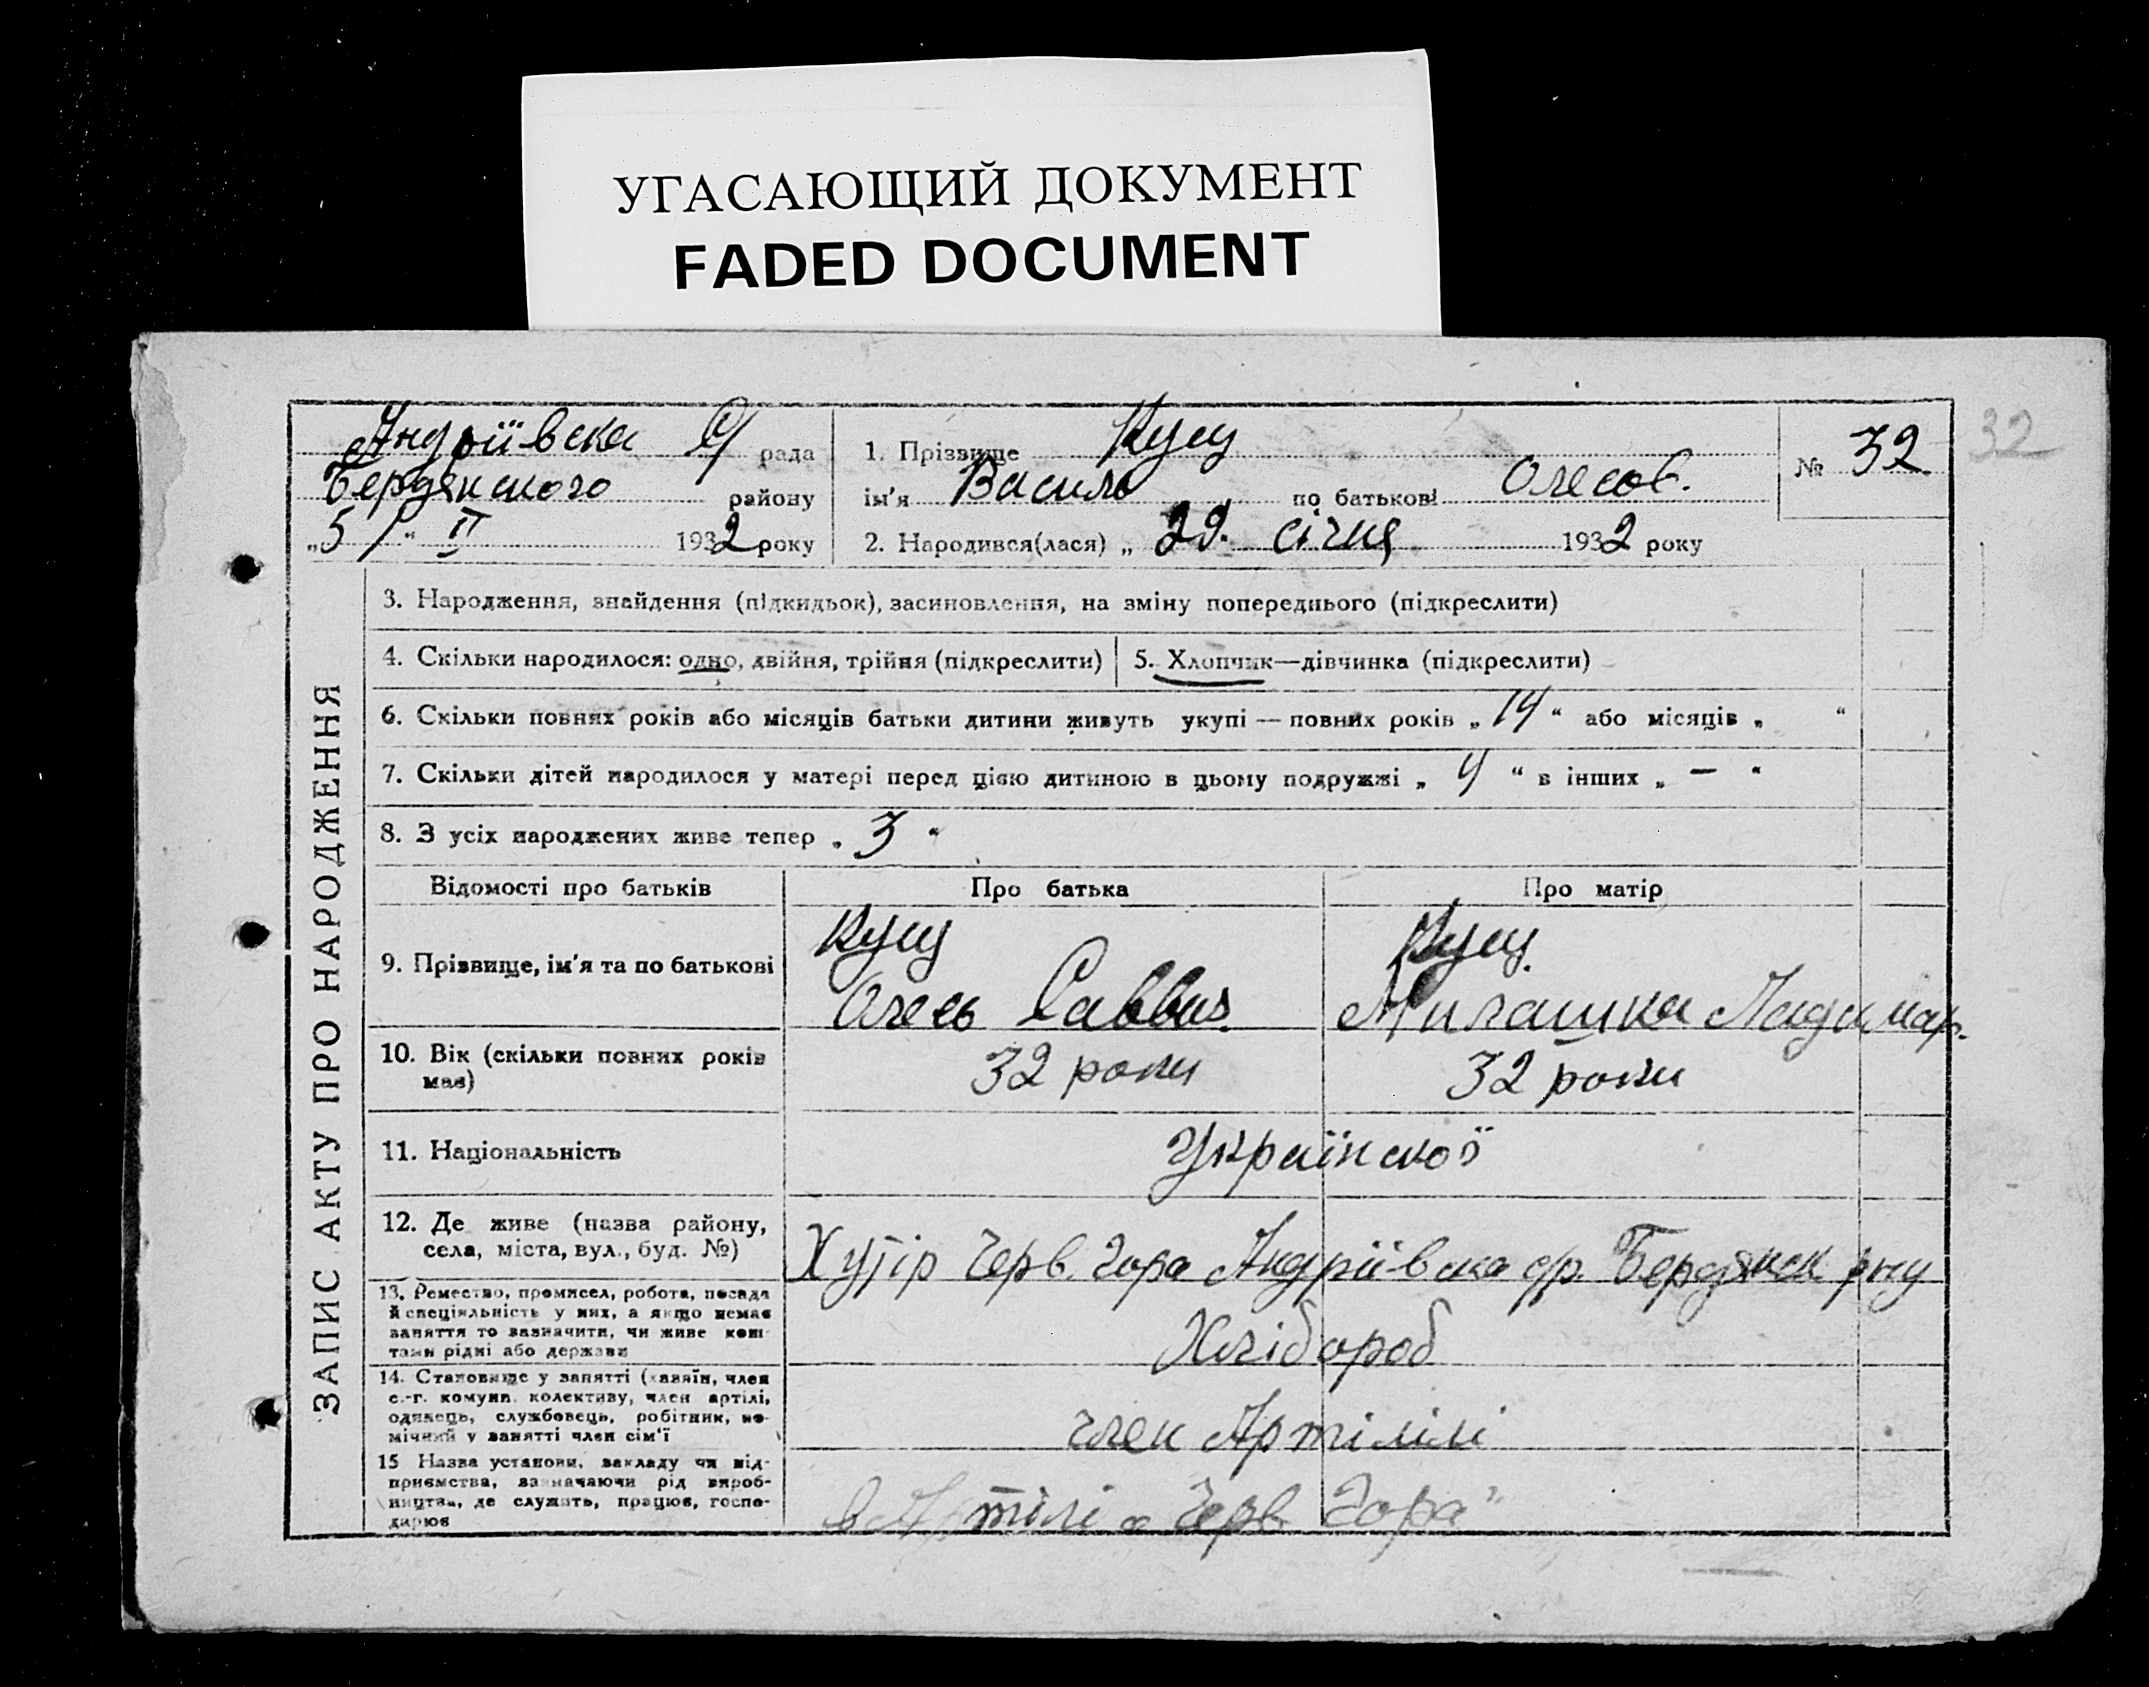 УГАСАЮЩИЙ ДОКУМЕНТ
FADED DOCUMENT
32
Андріївска С/ рада
Бердянского району
„5/“ II 1932 року
1. Прізвище Кущ
ім'я Василь по батькові Олесов.
2. Народився(лася) „29. січня 1932 року
№ 32
ЗАПИС АКТУ ПРО НАРОДЖЕННЯ
3. Народження, знайдення (підкидьок), засиновлення, на зміну попереднього (підкреслити)
4. Скільки народилося: одно, двійня, трійня (підкреслити)
5. Хлопчик—дівчинка (підкреслити)
6. Скільки повних років або місяців батьки дитини живуть укупі — повних років „14“ або місяців „ “
7. Скільки дітей народилося у матері перед цією дитиною в цьому подружжі „4“ в інших „—“
8. З усіх народжених живе тепер „3“
Відомості про батьків
Про батька
Про матір
9. Прізвище, ім'я та по батькові
Кущ
Олесь Саввов.
Кущ
10. Вік (скільки повних років
має)
32 роки
32 роки
11. Національність
Українскої
12. Де живе (назва району,
села, міста, вул., буд. №)
Хутір Черв. Гора Андріївска с/р. Бердянск р-ну
13. Ремество, промисел, робота, посада
й спеціяльність у них, а якщо немає
заняття то зазначити, чи живе кош-
тами рідні або держави
Хлібороб
14. Становище у занятті (хазяїн, член
с.-г. комуни, колективу, член артілі,
одинець, службовець, робітник, по-
мічний у занятті член сім'ї
член Артілілі
15 Назва установи, закладу чи під-
приємства, зазначаючи рід вироб-
ництва, де служить, працює, госпо-
дарює
в Артілі „Черв Гора"